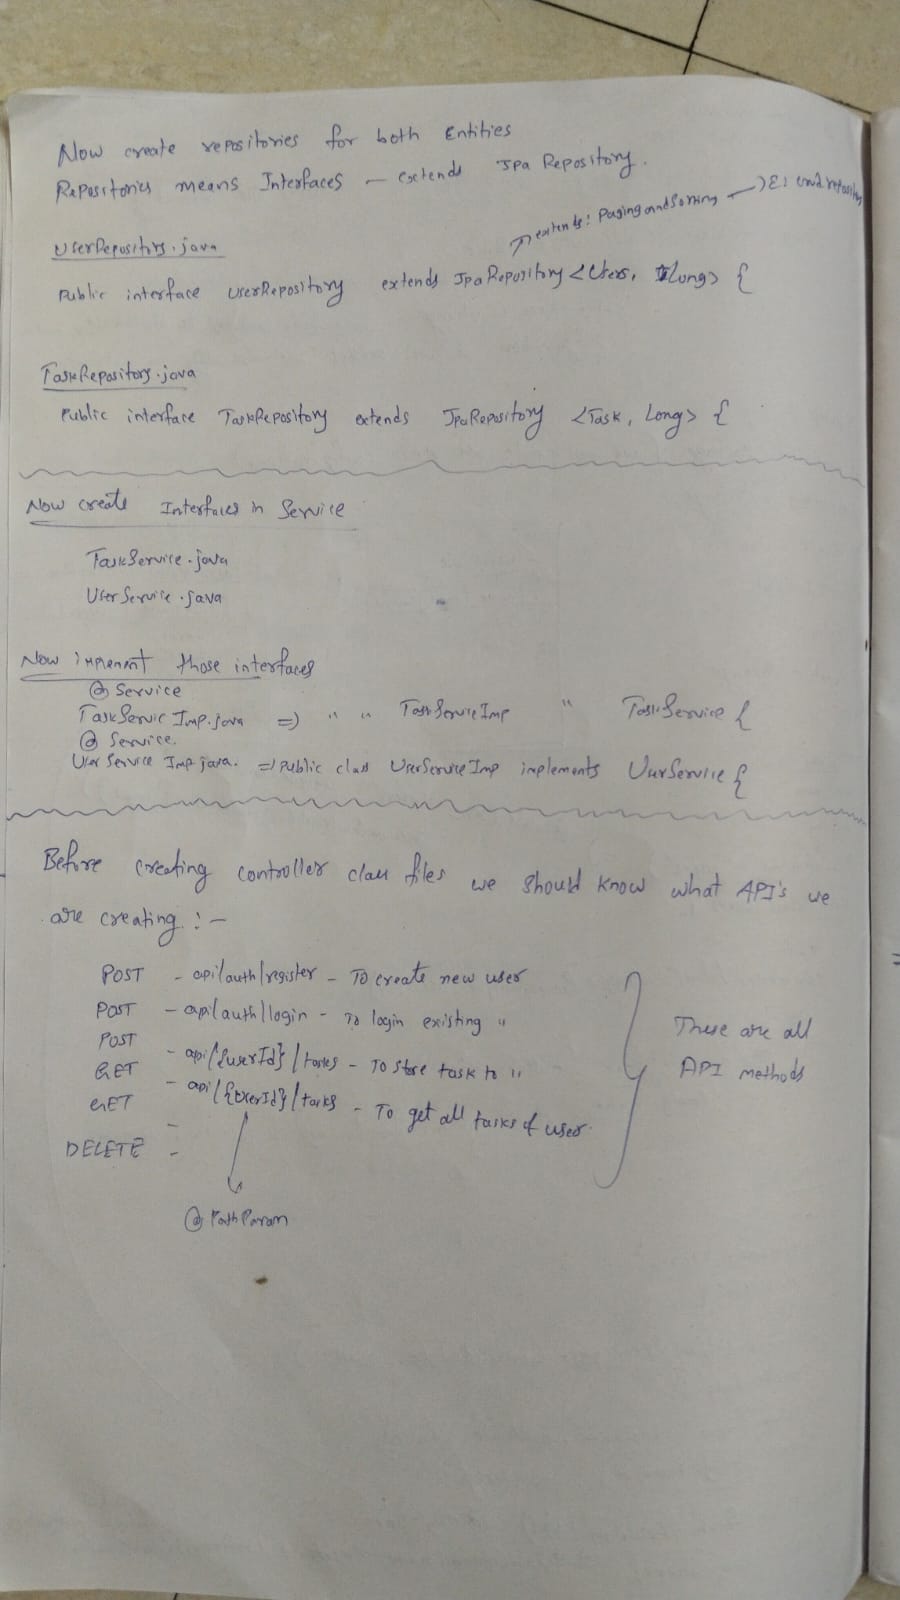 Now create repositories for both Entities
Repositories means Interfaces — extends Jpa Repository.
extends: PagingandSorting → E: crudrepository
UserRepository.java
Public interface UserRepository extends JpaRepository <Users, Long> {
TaskRepository.java
Public interface TaskRepository extends JpaRepository <Task, Long> {
Now create Interfaces in Service
TaskService.java
UserService.java
Now implement those interfaces
@ Service
TaskServic Imp.java => " " TaskServiceImp " TaskService {
@ Service.
User Service Imp java. => Public class UserServiceImp implements UserService {
Before creating controller class files we should know what API's we
are creating :-
POST - api/auth/register - To create new user
POST - api/auth/login - To login existing "
POST - api/{userId}/tasks - To store task to "
GET - api/{userId}/tasks - To get all tasks of user.
GET -
DELETE -
These are all
API methods
@PathParam